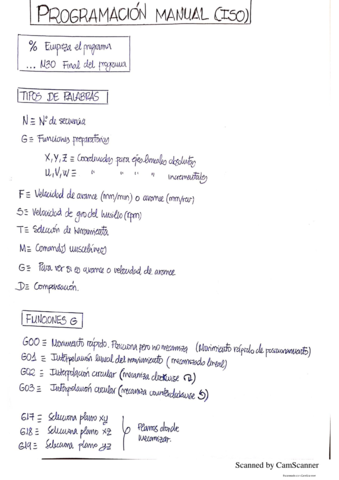 PROGRAMACIÓN MANUAL (ISO)
% Empieza el programa
... N30 Final del programa
TIPOS DE PALABRAS
N ≡ Nº de secuencia
G ≡ Funciones preparatorias
X, Y, Z ≡ Coordenadas para ejes lineales absolutos
U, V, W ≡ " " " " incrementales
F ≡ Velocidad de avance (mm/min) o avance (mm/rev)
S ≡ Velocidad de giro del husillo (rpm)
T ≡ Selección de herramienta
M ≡ Comandos misceláneos
G ≡ Para ver si es avance o velocidad de avance
D ≡ Compensación.
FUNCIONES G
G00 ≡ Movimiento rápido. Posiciona pero no mecaniza (Movimiento rápido de posicionamiento)
G01 ≡ Interpolación lineal del movimiento (mecanizado lineal)
G02 ≡ Interpolación circular (mecaniza clockwise ↻)
G03 ≡ Interpolación circular (mecaniza counterclockwise ↺)
G17 ≡ Selecciona plano xy
G18 ≡ Selecciona plano xz
G19 ≡ Selecciona plano yz
Planos donde
mecanizar.
Scanned by CamScanner